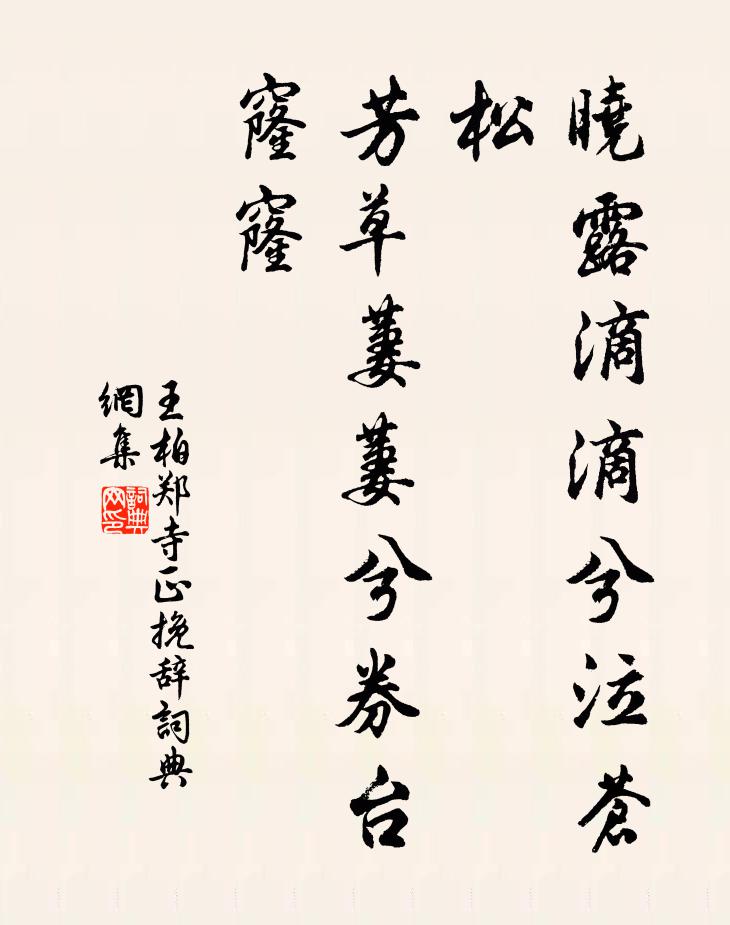 曉露滴滴兮泣蒼
松
芳草萋萋兮券台
窿窿
王柏郑寺正挽辞詞典
網集
詞典
网印